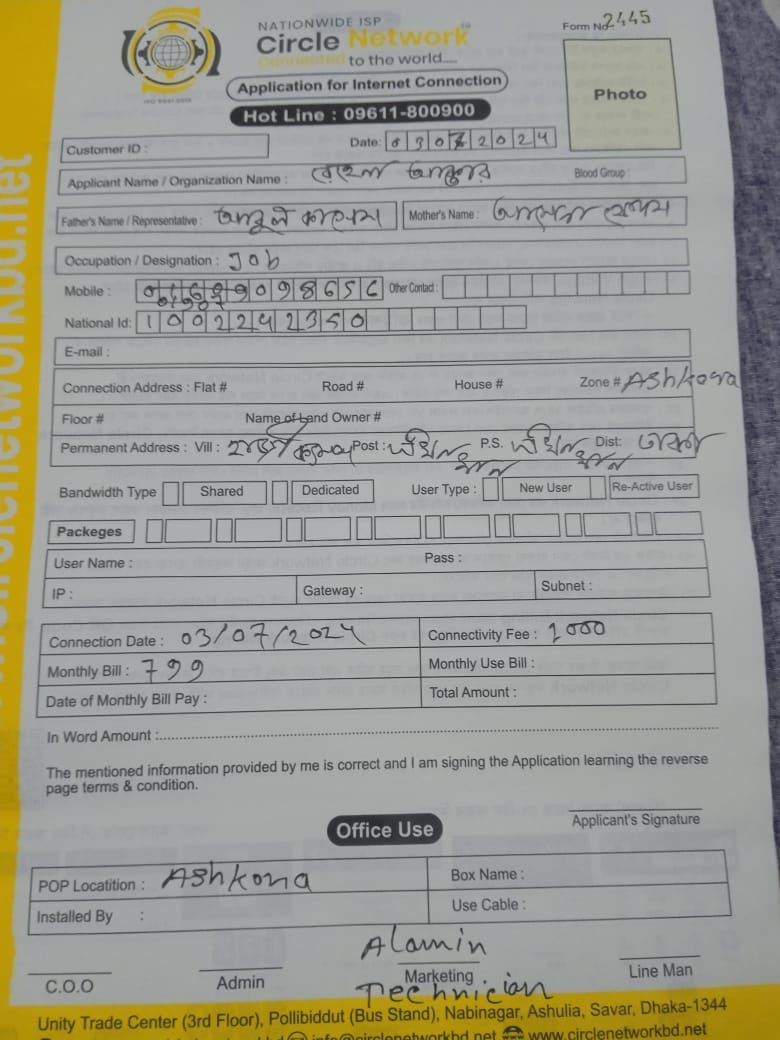 NATIONWIDE ISP
Circle Network
Connected to the world....
ISO 9001:2015
Form No. 2445
Application for Internet Connection
Hot Line : 09611-800900
Photo
Customer ID :
Date: 03072024
Applicant Name / Organization Name :
Blood Group :
Father's Name / Representative : Mother's Name :
Occupation / Designation : Job
Mobile : Other Contact :
National Id: 1002242350
E-mail :
Connection Address : Flat # Road # House # Zone # Ashkona
Floor # Name of Land Owner #
Permanent Address : Vill : Post : P.S. Dist: ঢাকা
Bandwidth Type Shared Dedicated User Type : New User Re-Active User
Packeges
User Name : Pass :
IP : Gateway : Subnet :
Connection Date : 03/07/2024 Connectivity Fee : 1000
Monthly Bill : 799 Monthly Use Bill :
Date of Monthly Bill Pay : Total Amount :
In Word Amount :
The mentioned information provided by me is correct and I am signing the Application learning the reverse
page terms & condition.
Applicant's Signature
Office Use
POP Locatition : Ashkona Box Name :
Installed By : Use Cable :
Alamin
C.O.O Admin Marketing Line Man
Technician
Unity Trade Center (3rd Floor), Pollibiddut (Bus Stand), Nabinagar, Ashulia, Savar, Dhaka-1344
info@circlenetworkbd.net www.circlenetworkbd.net